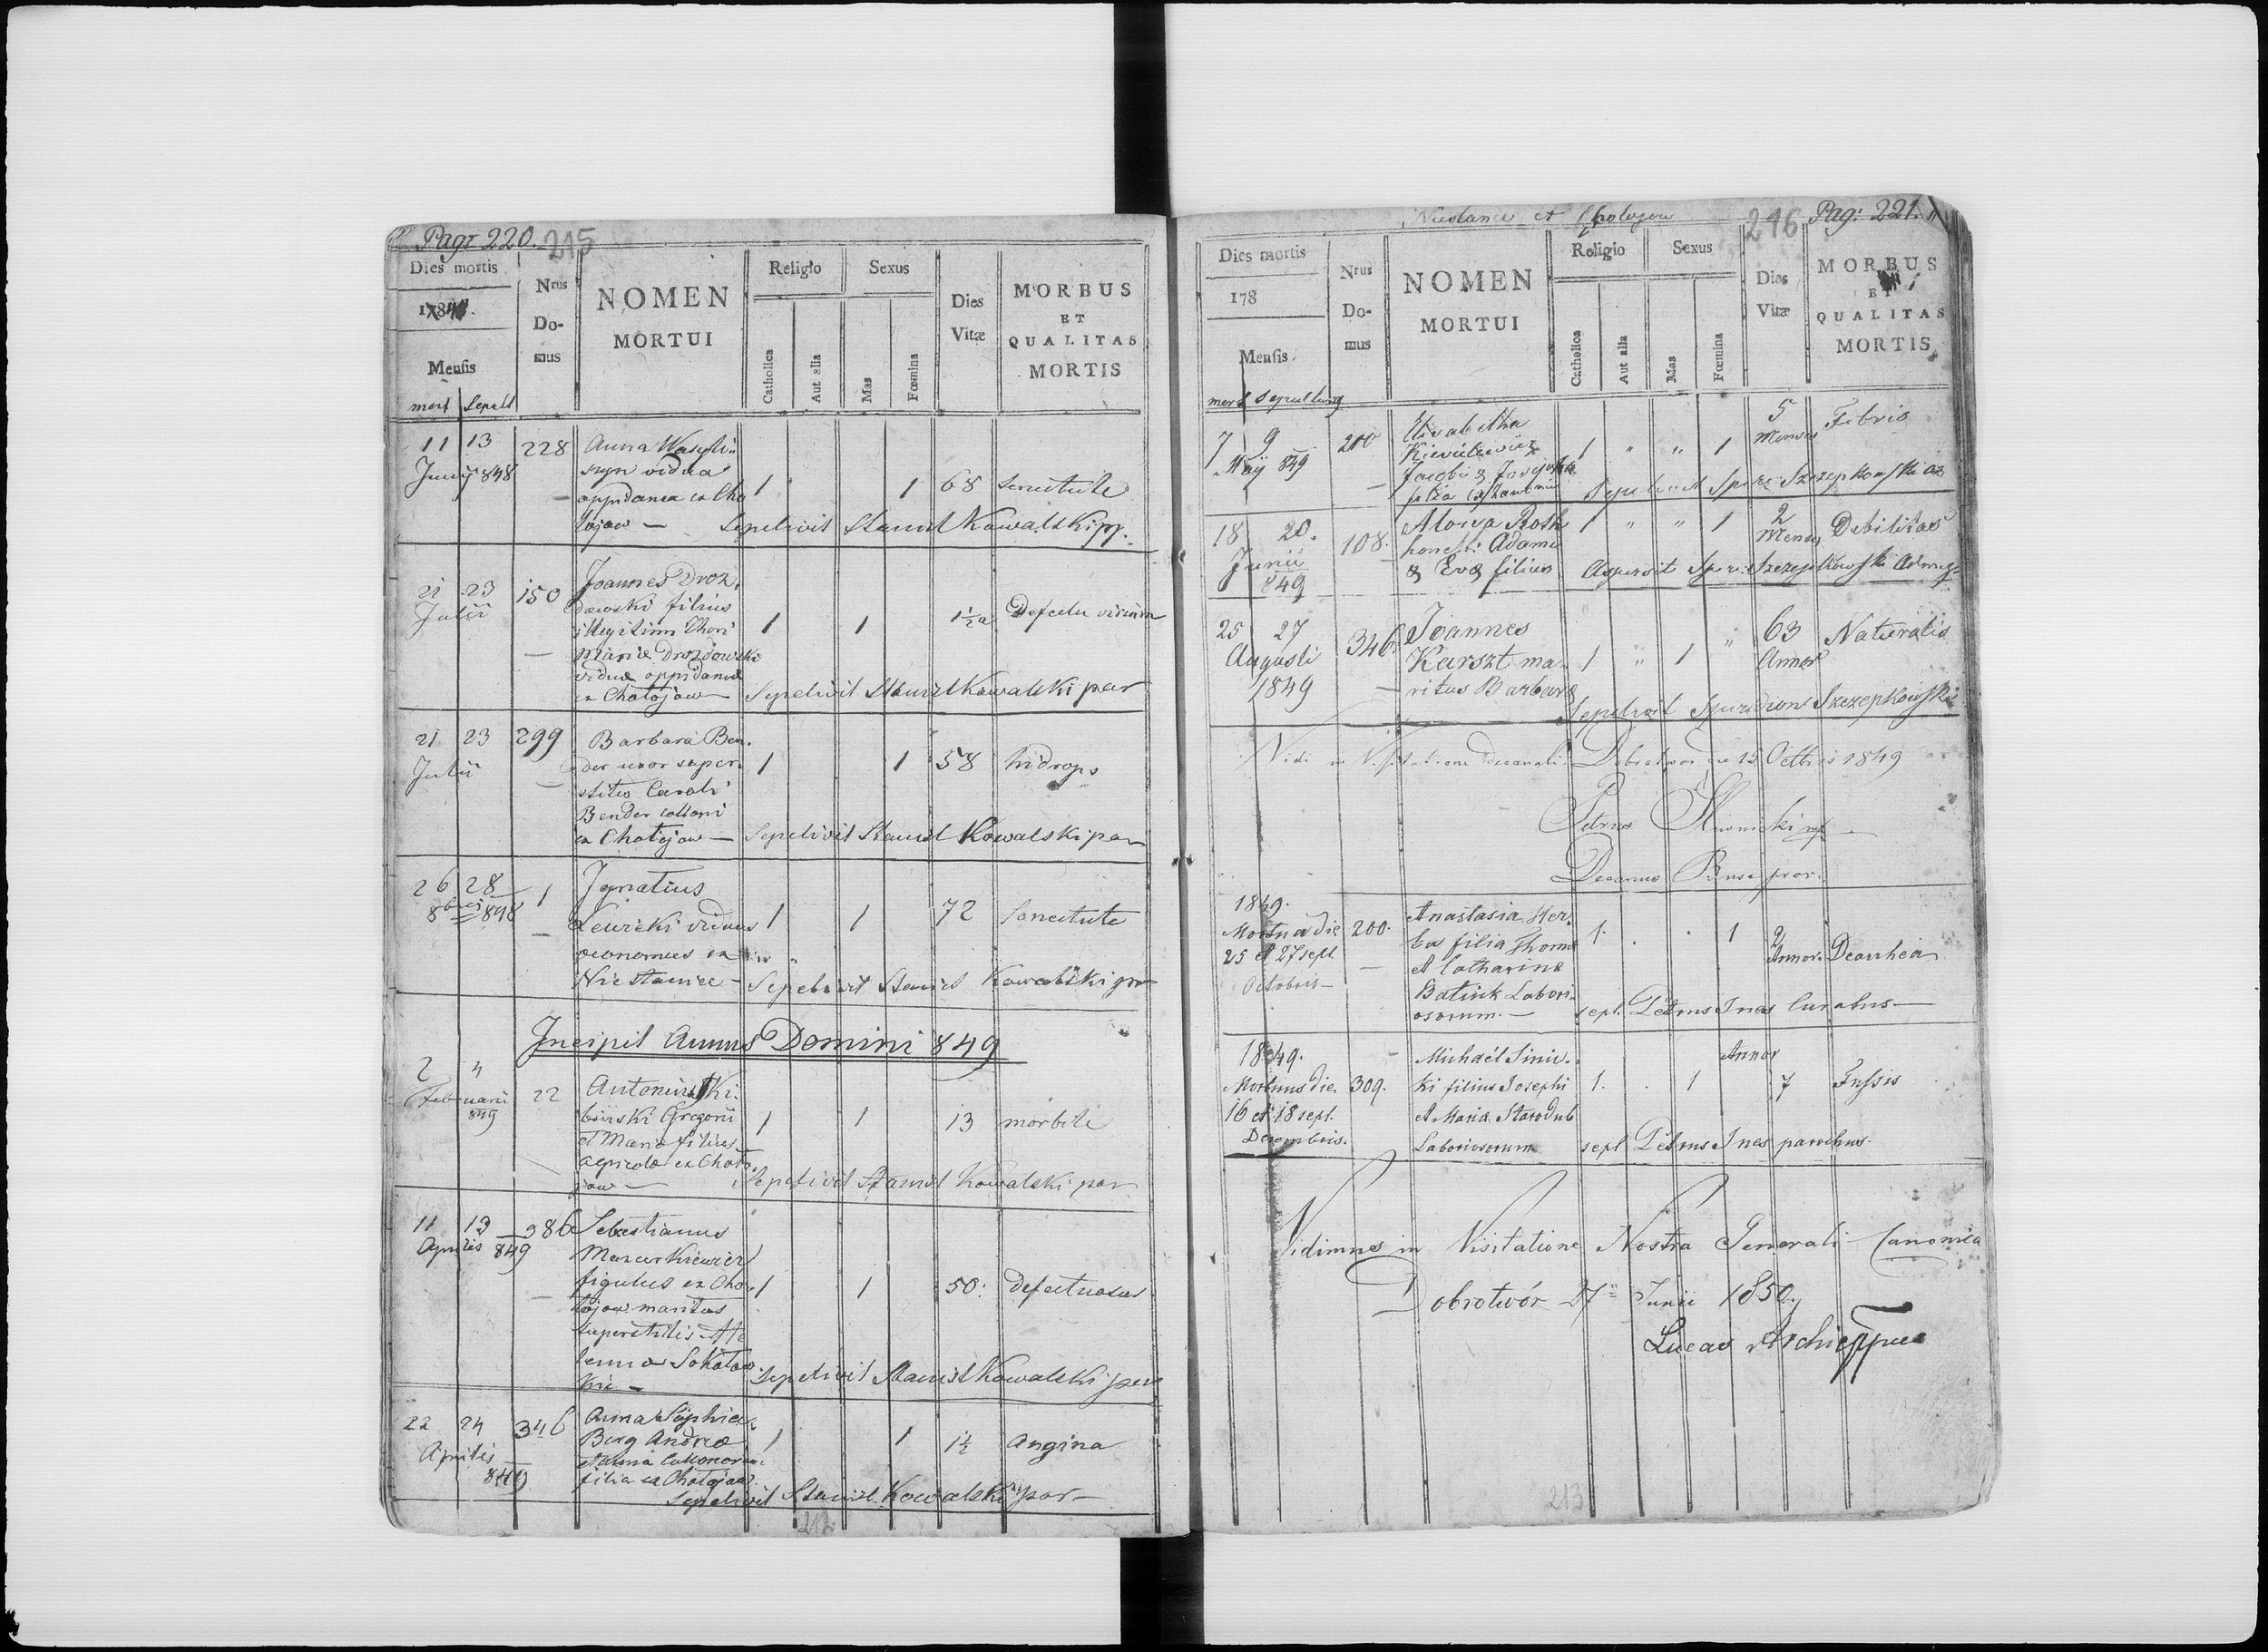 Pagr 220. 215
Dies mortis
Nrus Domus
NOMEN MORTUI
Religio
Sexus
Dies Vitæ
MORBUS ET QUALITAS MORTIS
Mensis
Catholica
Aut alia
Mas
Fœmina
mort Sepult
11 13 228 Anna Wasyli
Junij 848 vidua
oppidanea ex Cho 1 1 68 Senectute
tojow — Sepelivit Stanisl Kowalski pp.
21 23 150 Joannes Droz
Julii dowski filius
illegitimi Thori 1 1 1½ a Defectu virium
Mariæ Drozdowski
viduæ oppidaneæ
ex Chotojow — Sepelivit Stanisl Kowalski par
21 23 299 Barbara Ben.
Julii der uxor super 1 1 58 hidrops
stitis Caroli
Bender colloni
ex Chotojow — Sepelivit Stanisl Kowalski par
26 28 1 Ignatius
8bris 848 Lewicki viduus 1 1 72 Senectute
oeconomus ex
Niestanice — Sepelivit Stanisl Kowalski par
Incipit Annus Domini 849
2 4 22 Antonius Ki.
Februarii 849 binski Gregorii 1 1 13 morbile
et Mariæ filius
agricolæ ex Choto
jow — Sepelivit Stanisl Kowalski par
11 13 386 Sebastianus
Aprilis 849 Mazurkiewicz
figulus ex Cho 1 1 50: defectuosus
tojow maritus
superstitis He
lenna Sokołow
ski — Sepelivit Stanisl Kowalski par
22 24 346 Anna Sophia
Aprilis 849 Berg Andreæ 1 1 1½ Angina
Collonorum
filia ex Chotojow
Sepelivit Stanisl. Kowalski par —
212
Niestanice et Chołojow 216 Pag: 221.
Dies mortis
178
Nrus Domus
NOMEN MORTUI
Religio
Sexus
Dies Vitæ
MORBUS ET QUALITAS MORTIS
Mensis
Catholica
Aut alia
Mas
Fœmina
mort sepultura
7 9 200 Elisabetha 5 Febris
Maij 849 1 " " 1 Menses
Jacobi &
filia Sepelivit Szczepkowski
18 20. 108. Aloisa Roth 1 " " 1 2 Debilitas
Junii honesti Adami Menses
849 & Evæ filius Aspersit Szczepkowski
25 27 346. Joannes 63 Naturalis
Augusti Karszt ma 1 " 1 " Annor
1849 — ritus Barbaræ
Sepelivit Spiridion Szczepkowski
Vidi in Visitatione Decanali Dobrotwor die 15 Octbris 1849
Petrus
Decanus
1849.
Mortua die 200. Anastasia Her.
25 et 27 sept. filia Thomæ 1. . . 1 2 Annor. Dearrhea
Octobris — et Catharinæ
Batiuk Labori
osorum. — sepl. Petrus Ines Curatus —
1849. Michaël Sinic. Annor
Mortuus die 309. ki filius Josephi 1. . 1 7 Tussis
16 et 18 sept. et Maria Starodub
Decembris. Laboriosorum sepl Petrus Ines parochus.
Vidimus in Visitatione Nostra Generali Canonica
Dobrotwór 27 Junii 1850.
Lucas Archieppus
213